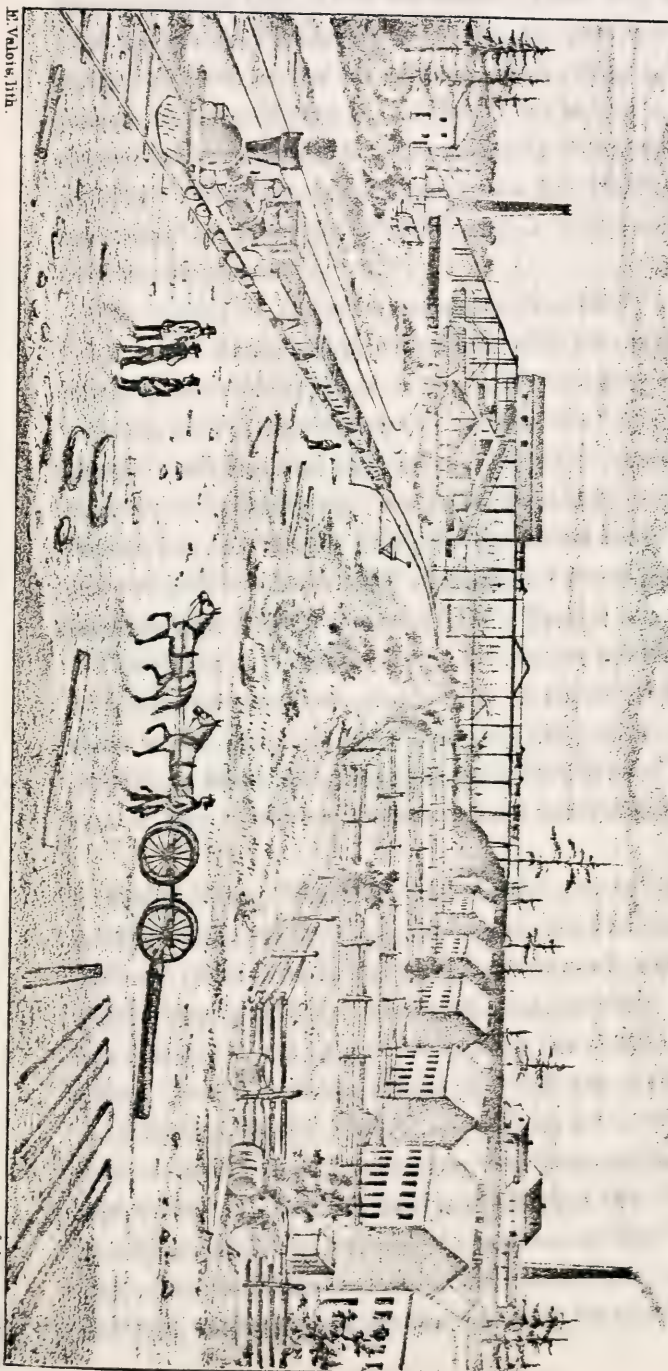 E. Valois, lith.